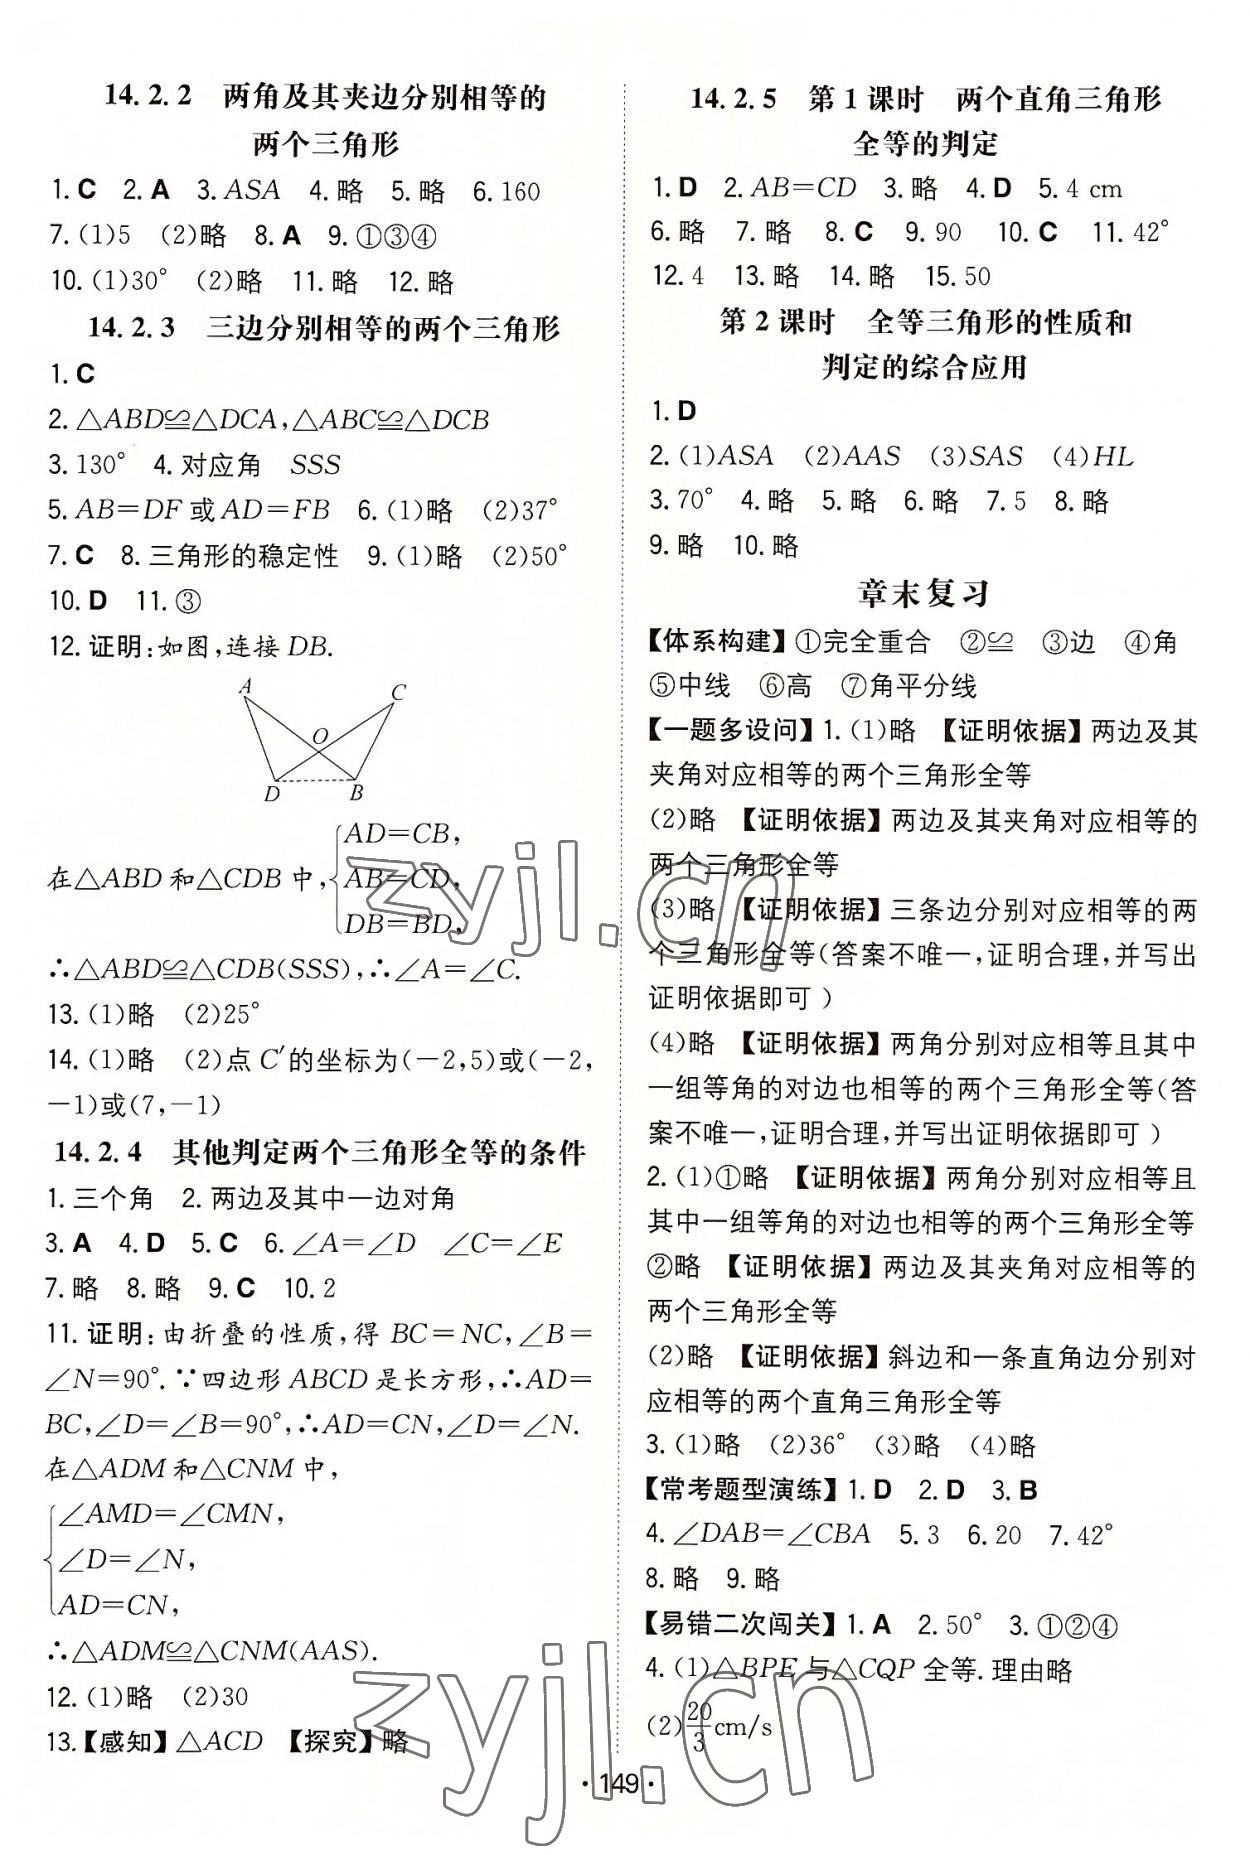 14.2.2 两角及其夹边分别相等的
两个三角形
1.C 2.A 3.ASA 4.略 5.略 6.160
7.(1)5 (2)略 8.A 9.①③④
10.(1)30° (2)略 11.略 12.略
14.2.3 三边分别相等的两个三角形
1.C
2.△ABD≌△DCA,△ABC≌△DCB
3.130° 4.对应角 SSS
5.AB=DF或AD=FB 6.(1)略 (2)37°
7.C 8.三角形的稳定性 9.(1)略 (2)50°
10.D 11.③
12.证明:如图,连接DB.
A
C
O
D
B
在△ABD和△CDB中,
AD=CB,
AB=CD,
DB=BD,
∴△ABD≌△CDB(SSS),∴∠A=∠C.
13.(1)略 (2)25°
14.(1)略 (2)点C′的坐标为(-2,5)或(-2,
-1)或(7,-1)
14.2.4 其他判定两个三角形全等的条件
1.三个角 2.两边及其中一边对角
3.A 4.D 5.C 6.∠A=∠D ∠C=∠E
7.略 8.略 9.C 10.2
11.证明:由折叠的性质,得BC=NC,∠B=
∠N=90°.∵四边形ABCD是长方形,∴AD=
BC,∠D=∠B=90°,∴AD=CN,∠D=∠N.
在△ADM和△CNM中,
∠AMD=∠CMN,
∠D=∠N,
AD=CN,
∴△ADM≌△CNM(AAS).
12.(1)略 (2)30
13.【感知】△ACD 【探究】略
14.2.5 第1课时 两个直角三角形
全等的判定
1.D 2.AB=CD 3.略 4.D 5.4 cm
6.略 7.略 8.C 9.90 10.C 11.42°
12.4 13.略 14.略 15.50
第2课时 全等三角形的性质和
判定的综合应用
1.D
2.(1)ASA (2)AAS (3)SAS (4)HL
3.70° 4.略 5.略 6.略 7.5 8.略
9.略 10.略
章末复习
【体系构建】①完全重合 ②≌ ③边 ④角
⑤中线 ⑥高 ⑦角平分线
【一题多设问】1.(1)略 【证明依据】两边及其
夹角对应相等的两个三角形全等
(2)略 【证明依据】两边及其夹角对应相等的
两个三角形全等
(3)略 【证明依据】三条边分别对应相等的两
个三角形全等(答案不唯一,证明合理,并写出
证明依据即可)
(4)略 【证明依据】两角分别对应相等且其中
一组等角的对边也相等的两个三角形全等(答
案不唯一,证明合理,并写出证明依据即可)
2.(1)①略 【证明依据】两角分别对应相等且
其中一组等角的对边也相等的两个三角形全等
②略 【证明依据】两边及其夹角对应相等的
两个三角形全等
(2)略 【证明依据】斜边和一条直角边分别对
应相等的两个直角三角形全等
3.(1)略 (2)36° (3)略 (4)略
【常考题型演练】1.D 2.D 3.B
4.∠DAB=∠CBA 5.3 6.20 7.42°
8.略 9.略
【易错二次闯关】1.A 2.50° 3.①②④
4.(1)△BPE与△CQP全等.理由略
(2)20/3 cm/s
·149·
zyjl.cn
zyjl.cn